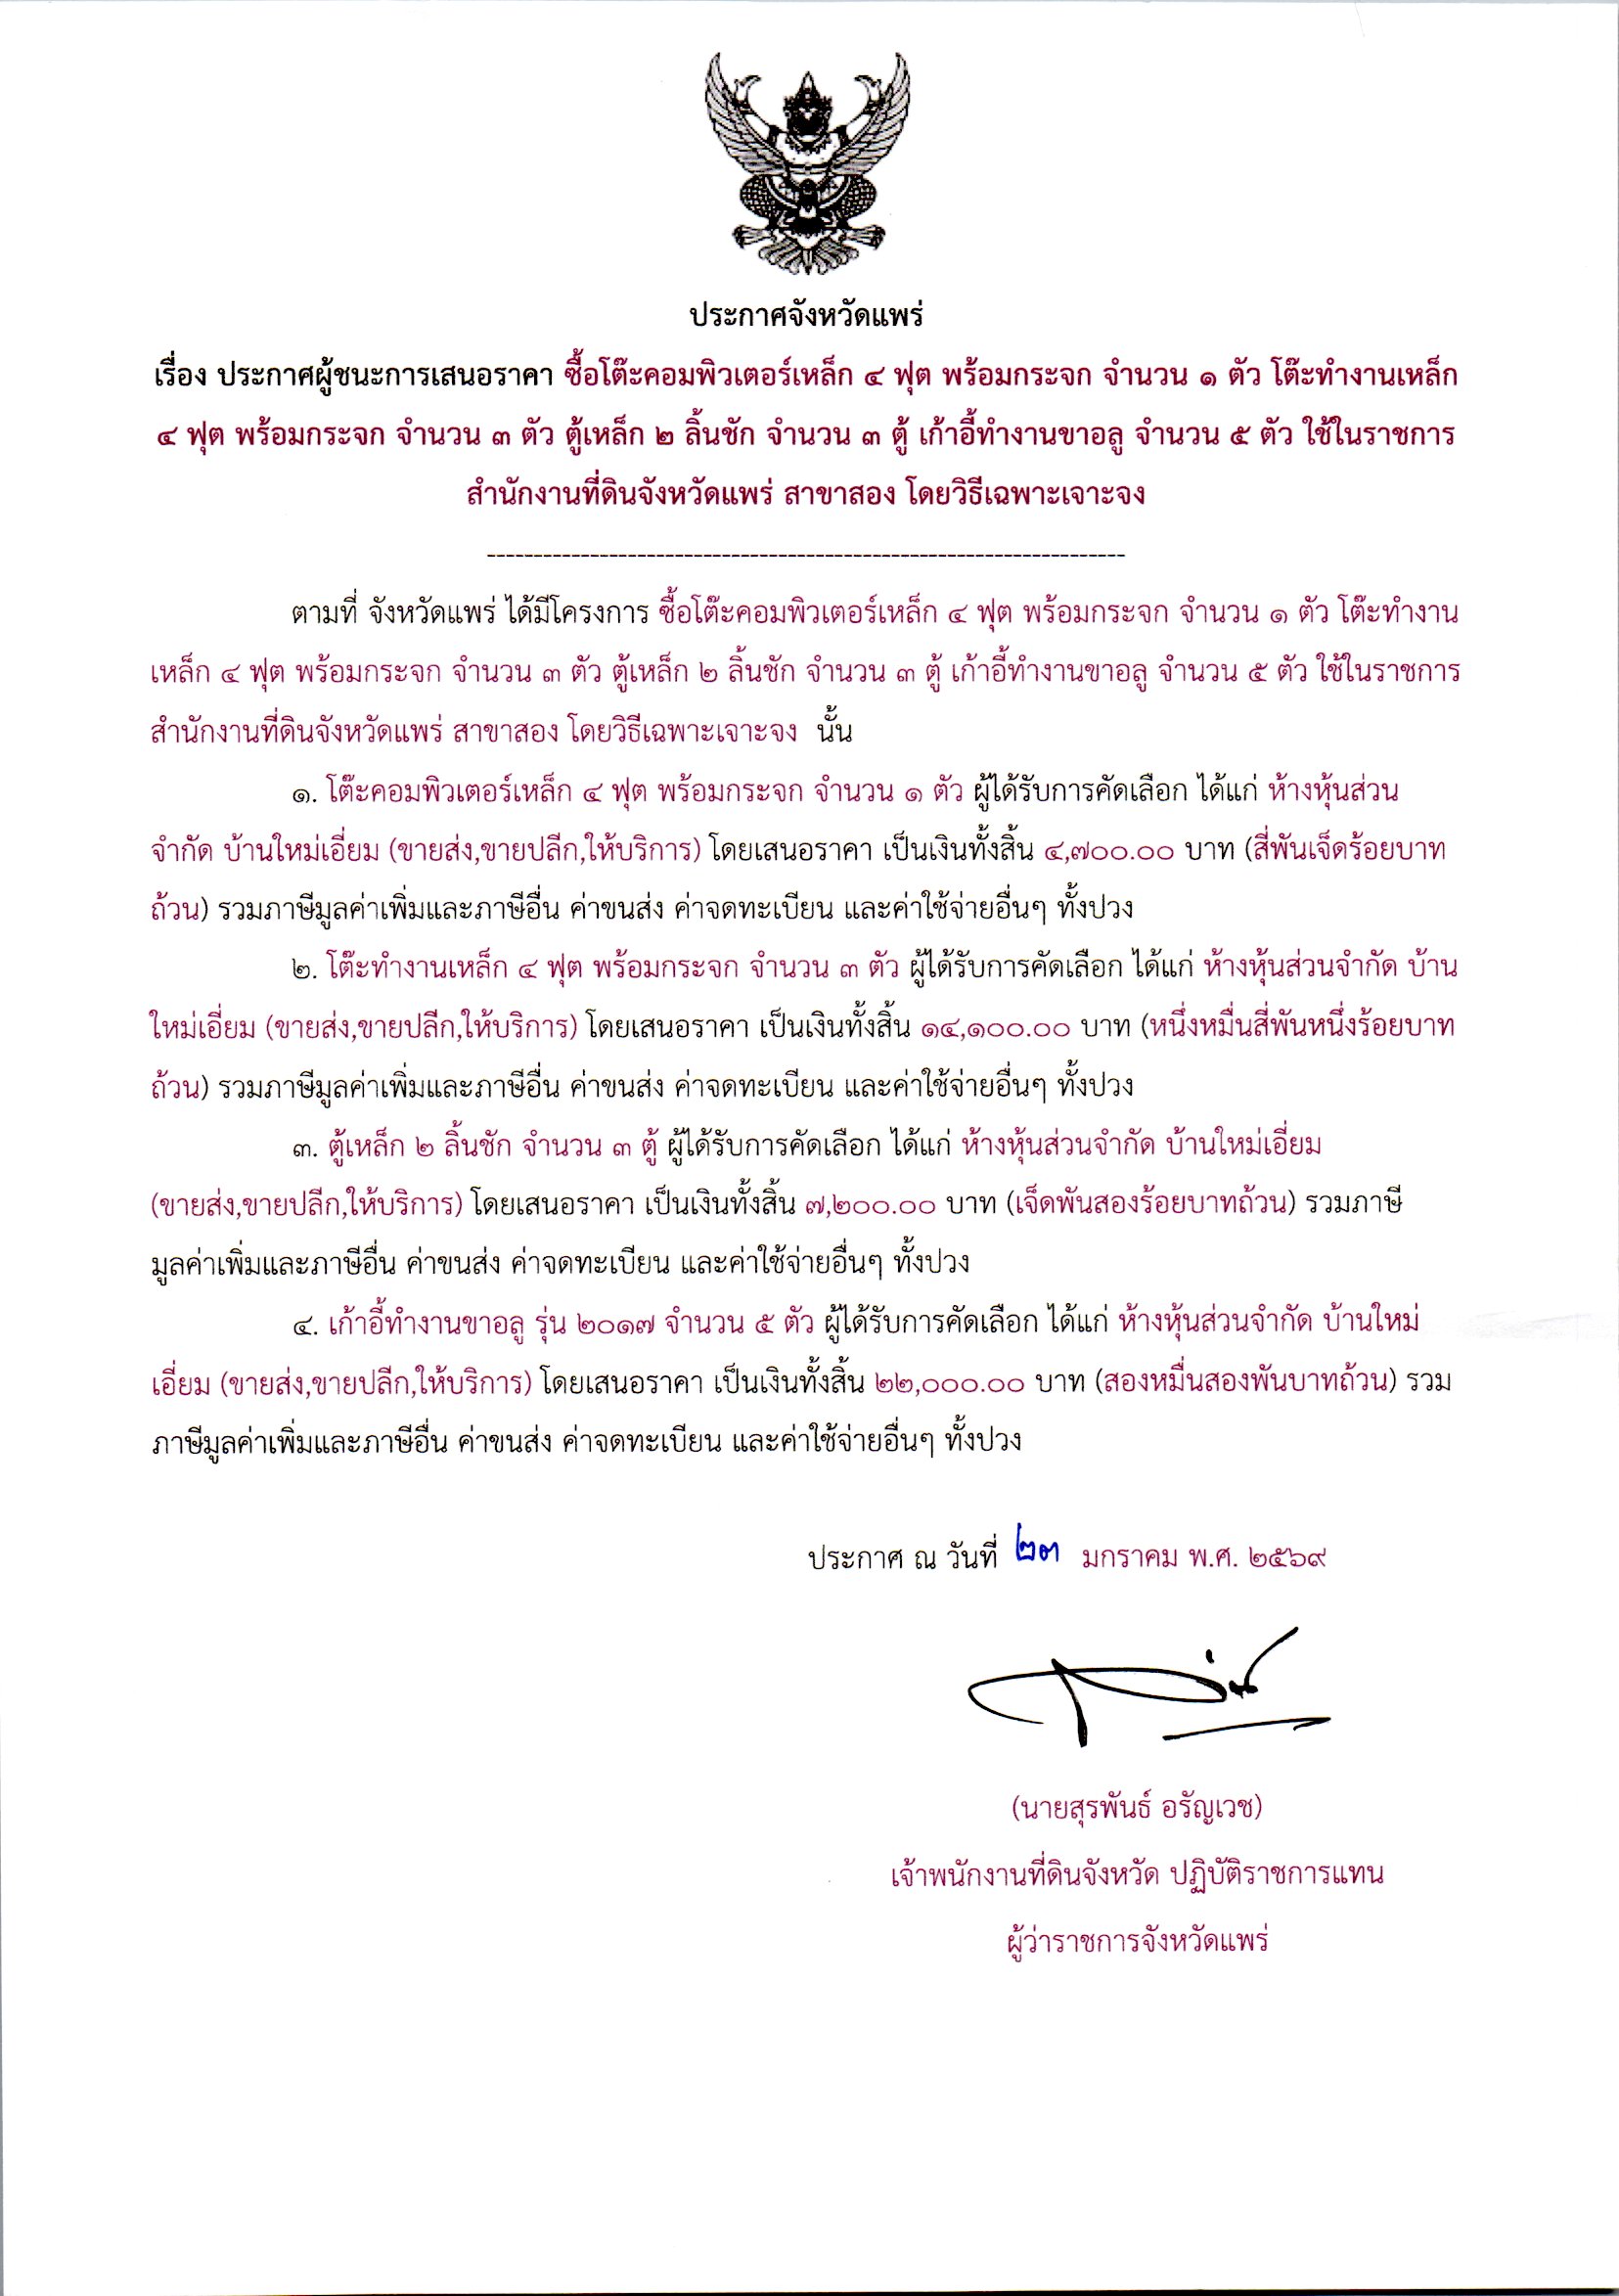 ประกาศจังหวัดแพร่
เรื่อง ประกาศผู้ชนะการเสนอราคา ซื้อโต๊ะคอมพิวเตอร์เหล็ก ๔ ฟุต พร้อมกระจก จำนวน ๑ ตัว โต๊ะทำงานเหล็ก
๔ ฟุต พร้อมกระจก จำนวน ๓ ตัว ตู้เหล็ก ๒ ลิ้นชัก จำนวน ๓ ตู้ เก้าอี้ทำงานขาอลู จำนวน ๕ ตัว ใช้ในราชการ
สำนักงานที่ดินจังหวัดแพร่ สาขาสอง โดยวิธีเฉพาะเจาะจง
--------------------------------------------------------------------
ตามที่ จังหวัดแพร่ ได้มีโครงการ ซื้อโต๊ะคอมพิวเตอร์เหล็ก ๔ ฟุต พร้อมกระจก จำนวน ๑ ตัว โต๊ะทำงาน
เหล็ก ๔ ฟุต พร้อมกระจก จำนวน ๓ ตัว ตู้เหล็ก ๒ ลิ้นชัก จำนวน ๓ ตู้ เก้าอี้ทำงานขาอลู จำนวน ๕ ตัว ใช้ในราชการ
สำนักงานที่ดินจังหวัดแพร่ สาขาสอง โดยวิธีเฉพาะเจาะจง นั้น
๑. โต๊ะคอมพิวเตอร์เหล็ก ๔ ฟุต พร้อมกระจก จำนวน ๑ ตัว ผู้ได้รับการคัดเลือก ได้แก่ ห้างหุ้นส่วน
จำกัด บ้านใหม่เอี่ยม (ขายส่ง,ขายปลีก,ให้บริการ) โดยเสนอราคา เป็นเงินทั้งสิ้น ๔,๗๐๐.๐๐ บาท (สี่พันเจ็ดร้อยบาท
ถ้วน) รวมภาษีมูลค่าเพิ่มและภาษีอื่น ค่าขนส่ง ค่าจดทะเบียน และค่าใช้จ่ายอื่นๆ ทั้งปวง
๒. โต๊ะทำงานเหล็ก ๔ ฟุต พร้อมกระจก จำนวน ๓ ตัว ผู้ได้รับการคัดเลือก ได้แก่ ห้างหุ้นส่วนจำกัด บ้าน
ใหม่เอี่ยม (ขายส่ง,ขายปลีก,ให้บริการ) โดยเสนอราคา เป็นเงินทั้งสิ้น ๑๔,๑๐๐.๐๐ บาท (หนึ่งหมื่นสี่พันหนึ่งร้อยบาท
ถ้วน) รวมภาษีมูลค่าเพิ่มและภาษีอื่น ค่าขนส่ง ค่าจดทะเบียน และค่าใช้จ่ายอื่นๆ ทั้งปวง
๓. ตู้เหล็ก ๒ ลิ้นชัก จำนวน ๓ ตู้ ผู้ได้รับการคัดเลือก ได้แก่ ห้างหุ้นส่วนจำกัด บ้านใหม่เอี่ยม
(ขายส่ง,ขายปลีก,ให้บริการ) โดยเสนอราคา เป็นเงินทั้งสิ้น ๗,๒๐๐.๐๐ บาท (เจ็ดพันสองร้อยบาทถ้วน) รวมภาษี
มูลค่าเพิ่มและภาษีอื่น ค่าขนส่ง ค่าจดทะเบียน และค่าใช้จ่ายอื่นๆ ทั้งปวง
๔. เก้าอี้ทำงานขาอลู รุ่น ๒๐๑๗ จำนวน ๕ ตัว ผู้ได้รับการคัดเลือก ได้แก่ ห้างหุ้นส่วนจำกัด บ้านใหม่
เอี่ยม (ขายส่ง,ขายปลีก,ให้บริการ) โดยเสนอราคา เป็นเงินทั้งสิ้น ๒๒,๐๐๐.๐๐ บาท (สองหมื่นสองพันบาทถ้วน) รวม
ภาษีมูลค่าเพิ่มและภาษีอื่น ค่าขนส่ง ค่าจดทะเบียน และค่าใช้จ่ายอื่นๆ ทั้งปวง
ประกาศ ณ วันที่ ๒๓ มกราคม พ.ศ. ๒๕๖๙
(นายสุรพันธ์ อรัญเวช)
เจ้าพนักงานที่ดินจังหวัด ปฏิบัติราชการแทน
ผู้ว่าราชการจังหวัดแพร่